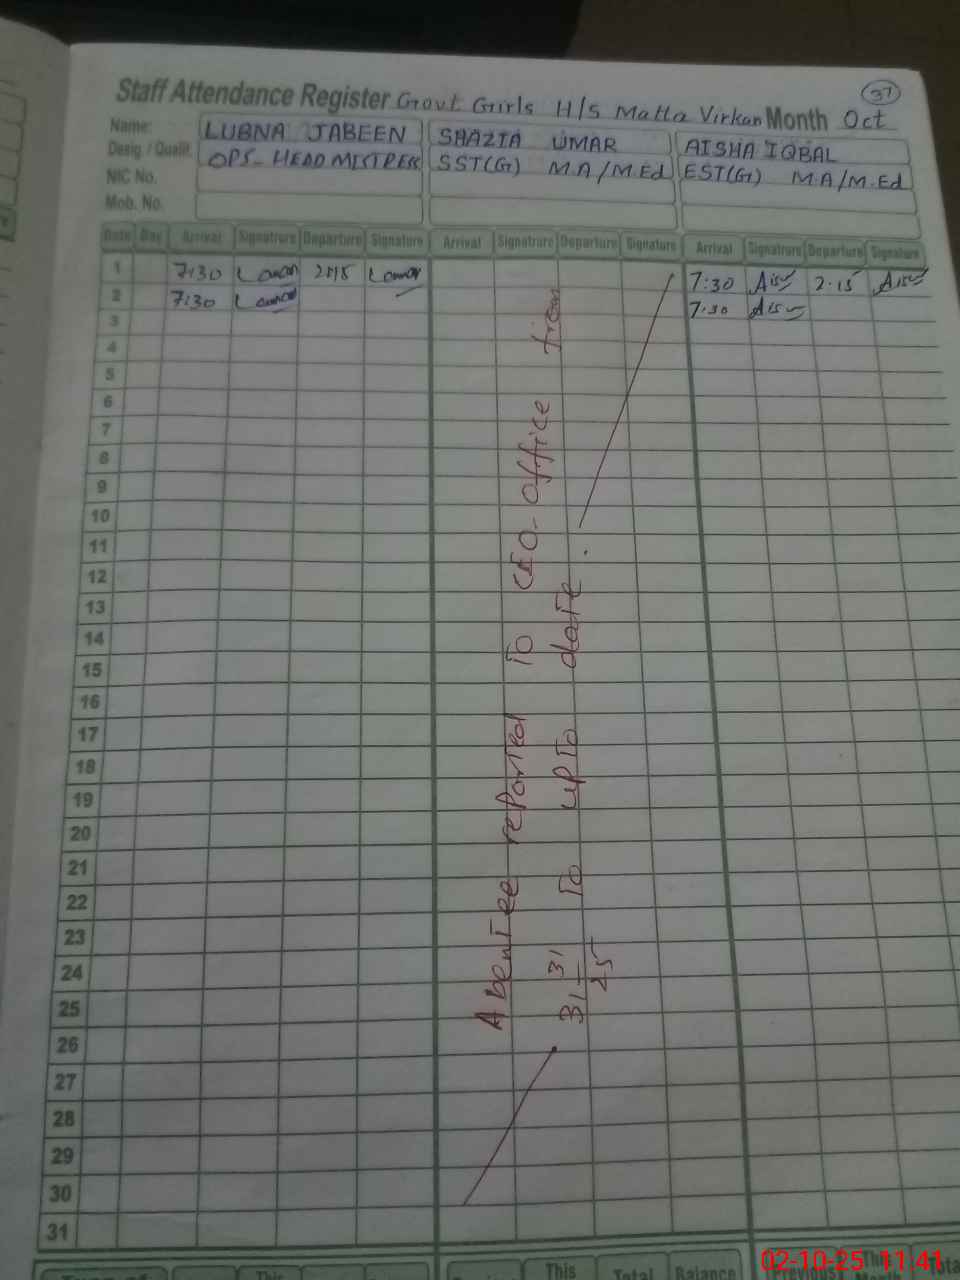 37
Staff Attendance Register Govt Girls H/S Matta Virkan Month Oct
Name: LUBNA JABEEN SHAZIA UMAR AISHA IQBAL
Desig. / Qualif. OPS- HEADMISTRESS SST(G) M.A/M.Ed EST(G) M.A/M.Ed
NIC No.
Mob. No.
Date Day Arrival Signatrure Departure Signature Arrival Signatrure Departure Signature Arrival Signatrure Departure Signature
1 7:30 2:15 7:30 2:15
2 7:30 7:30
3
4
5
6
7
8
9
10
11
12
13
14
15
16
17
18
19
20
21
22
23
24
25
26
27
28
29
30
31
AbenTee reporTed To CEO office from
To upTo daTe.
This Total Balance Previous This Total
02-10-25 11:41